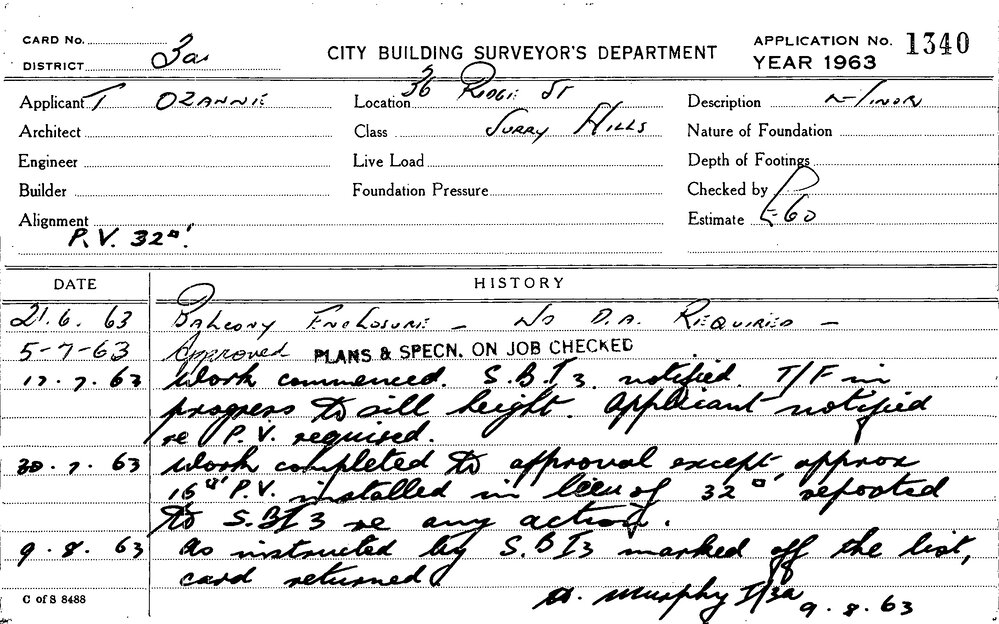 CARD No.
DISTRICT 3a
CITY BUILDING SURVEYOR'S DEPARTMENT
APPLICATION No. 1340
YEAR 1963
Applicant T OZANNIE
Location 36 RIDGE ST
Description MINOR
Architect
Class SURRY HILLS
Nature of Foundation
Engineer
Live Load
Depth of Footings
Builder
Foundation Pressure
Checked by
Alignment
Estimate £60
P.V. 32□'.
DATE HISTORY
21.6.63 BALCONY ENCLOSURE – NO D.A. REQUIRED –
5-7-63 Approved PLANS & SPECN. ON JOB CHECKED
17.7.63 Work commenced. S.B.I3. notified. T/F in
progress to sill height. Applicant notified
re P.V. required.
30.7.63 Work completed to approval except approx
16□' P.V. installed in lieu of 32□' reported
to S.B I 3 re any action.
9.8.63 As instructed by S.B I3 marked off the list,
card returned
Murphy I/3a 9.8.63
C of S 8488